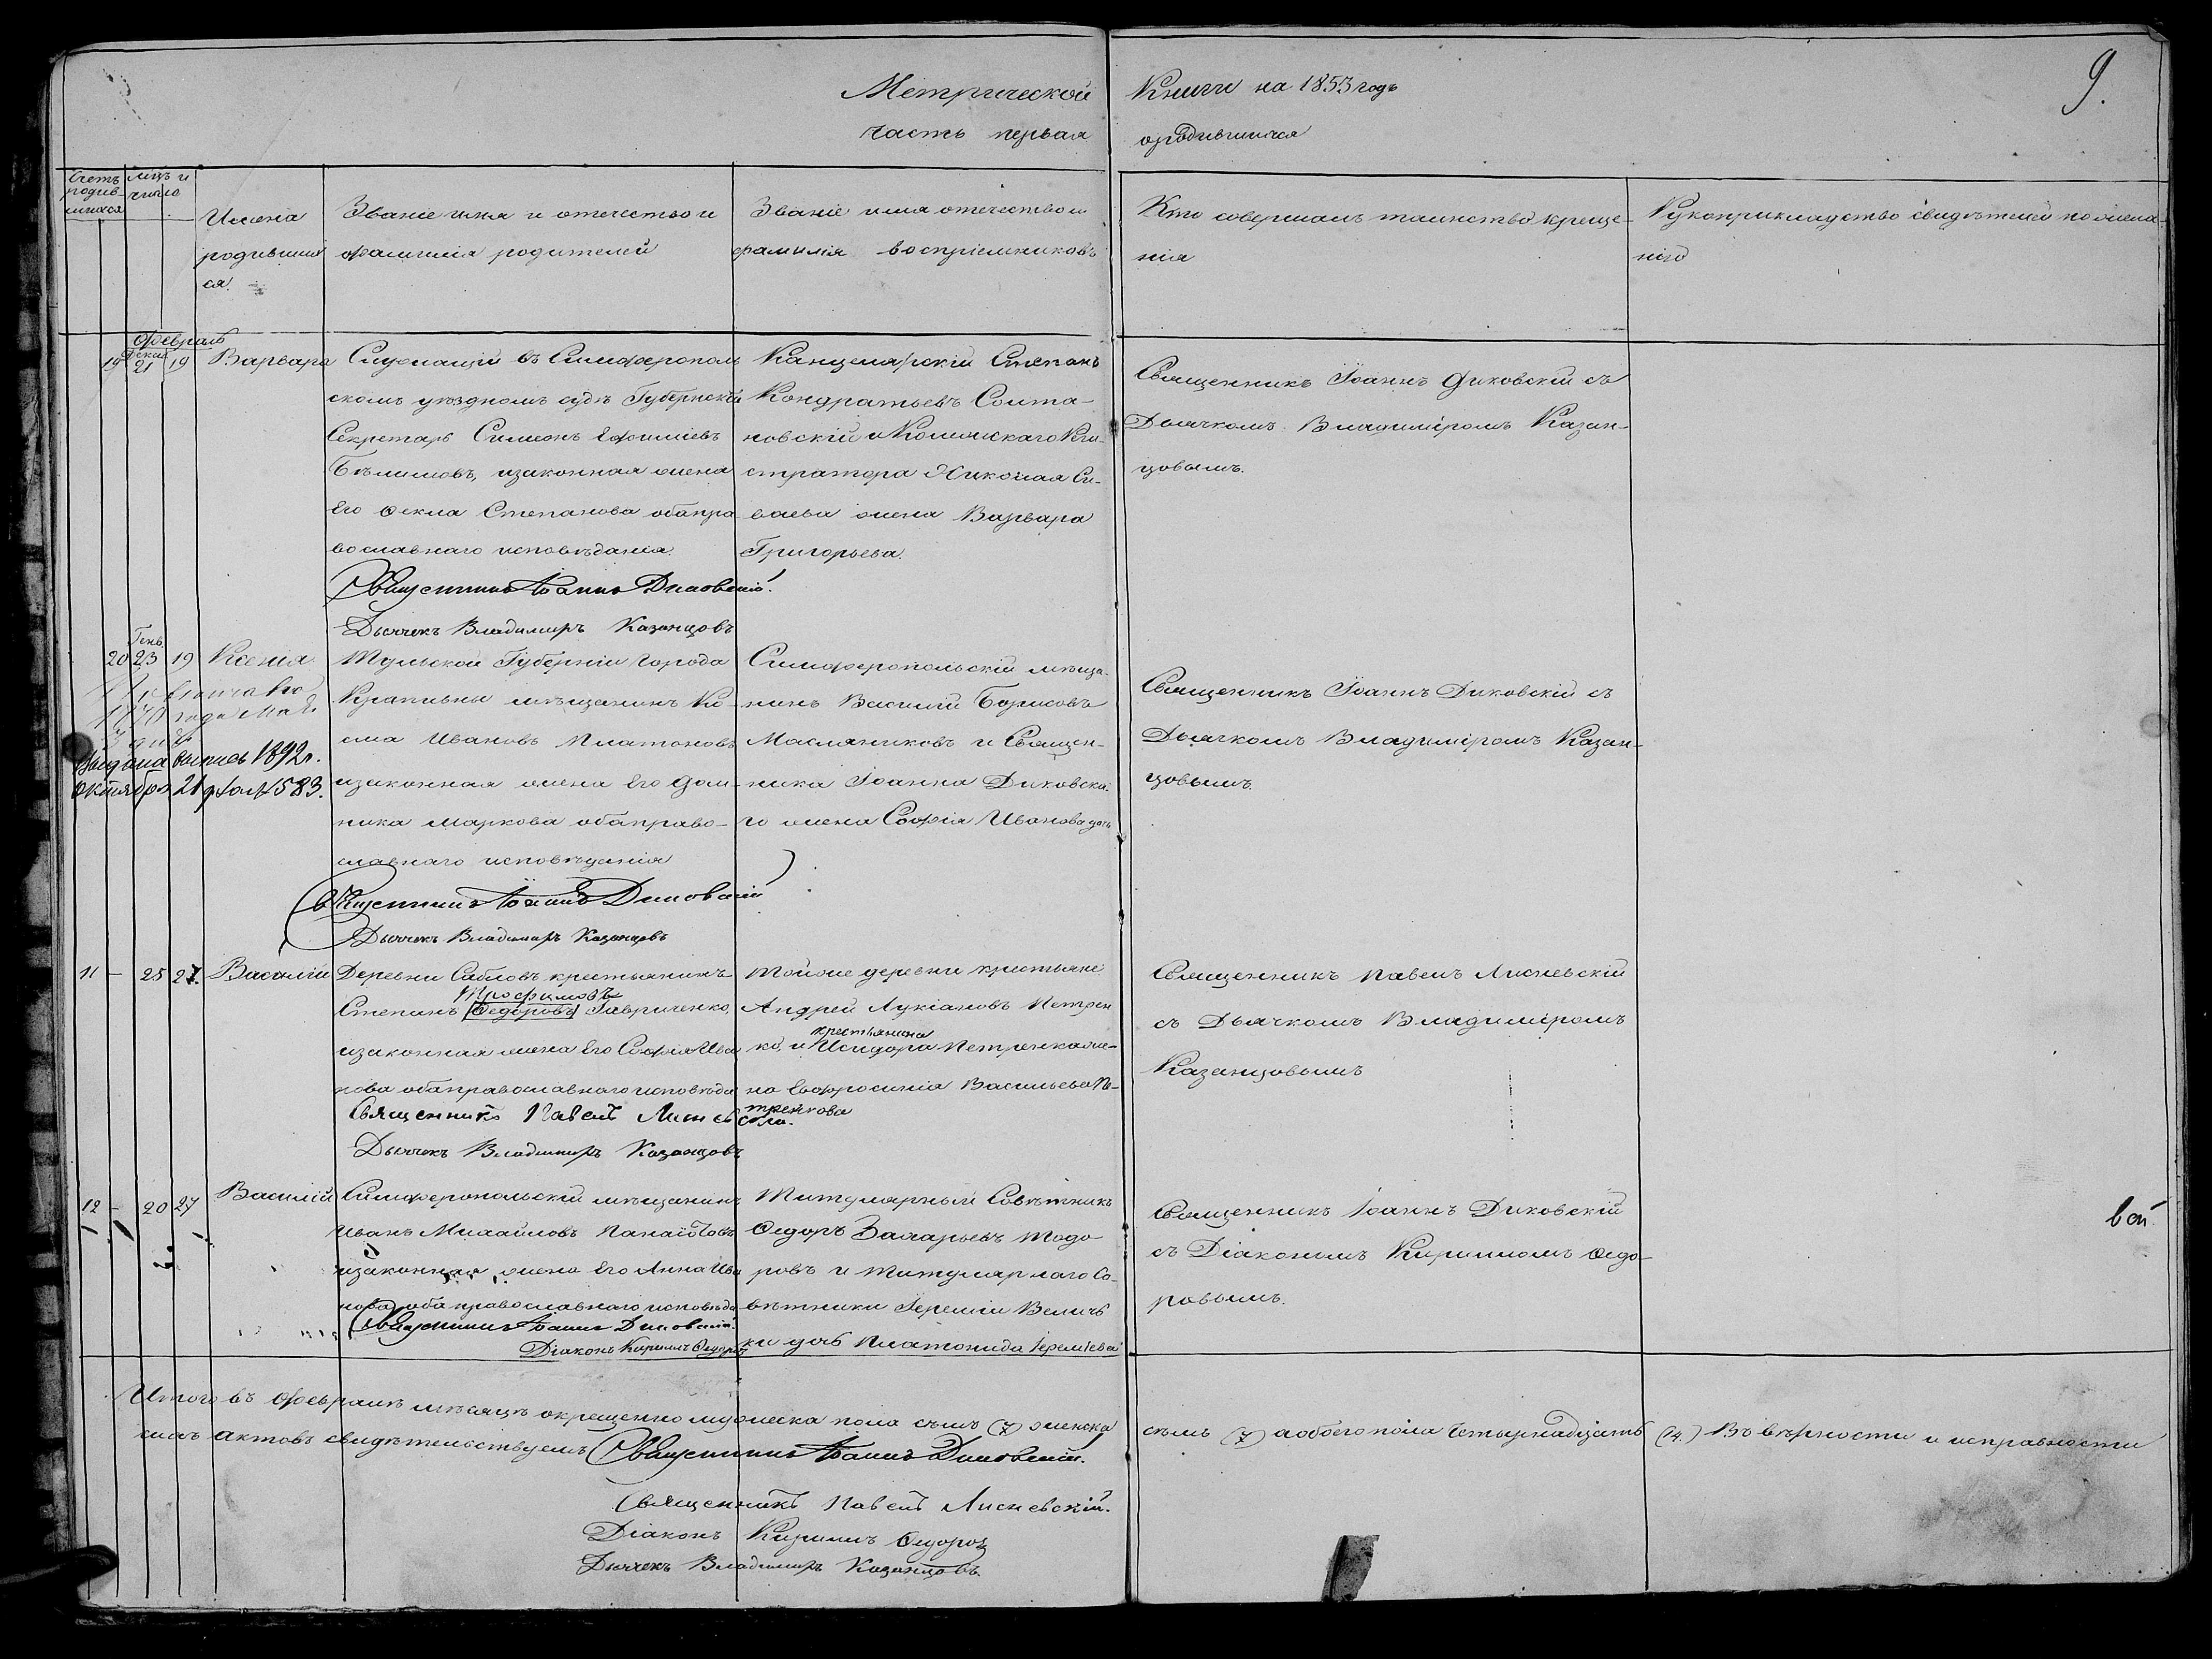 Метрической Книги на 1853 годъ
9.
часть первая о родившихся
Счетъ родив-шихся
мцъ и число
Имена
родивших
ся.
Званіе имя и отечество и
фамилія родителей
Званіе имя отечество и
фамилія воспріемниковъ
Кто совершалъ таинство креще-
нія
Рукоприкладство свидѣтелей по жела-
нію
Февраль
19 Декаб 21 19 Варвара
Служащій въ Симферополь
скомъ уѣздномъ судѣ Губернскій
Секретарь Симеонъ Ефиміевъ
изаконная жена
Его Ѳекла Степанова оба пра
вославнаго исповѣданія.
Священникъ Іоаннъ Диковскій.
Дьячекъ Владимиръ Казанцовъ
Канцелярскій Степанъ
Кондратьевъ Солта-
новскій и Реги-
стратора Николая Си-
ваева жена Варвара
Григорьева.
Священникъ Іоаннъ Диковскій съ
Дьячкомъ Владиміромъ Казан-
цовымъ.
20 Генв 23 19 Ксенія
1870 года Мая
Выдана выпись 1892 г.
Октября 21 дня за № 583.
Тульской Губерніи города
Крапивны мѣщанинъ Ко-
сма Ивановъ Платоновъ
изаконная жена Его Дом-
ника Маркова оба право-
славнаго исповѣданія
Священникъ Іоаннъ Диковскій
Дьячекъ Владимиръ Казанцовъ
Симферопольскій мѣща-
нинъ Василій Борисовъ
Масляниковъ и Священ-
ника Іоанна Диковска-
го жена Софія Иванова дочь
Священникъ Іоаннъ Диковскій съ
Дьячкомъ Владиміромъ Казан-
цовымъ.
11 – 25 27. Василій
Деревни Сабловъ крестьянинъ
Трофимовъ
Степанъ Федоровъ Гавриченко,
изаконная жена Его Софія Ива
нова оба православнаго исповѣда
Священникъ Павелъ Лисневскій.
Дьячекъ Владимиръ Казанцовъ
Тойже деревни крестьяне
Андрей Лукіановъ Петрен
крестьянина
ко, и Исидора Петренка же-
на Евфросинія Васильева Пе-
тренкова
Священникъ Павелъ Лисневскій
съ Дьячкомъ Владиміромъ
Казанцовымъ
12 – 20 27 Василій
Симферопольскій мѣщанинъ
Иванъ Михайловъ Панаіотовъ
изаконная жена Его Анна Ива
нова оба православнаго исповѣда
Священникъ Іоаннъ Диковскій.
Діаконъ Кирилъ Ѳедоровъ
Титулярный Совѣтникъ
Ѳедоръ Захарьевъ Тодо
ровъ и Титулярнаго Со-
вѣтника Іереміи Величь
ки дочь Платонида Іереміева
Священникъ Іоаннъ Диковскій
съ Діакономъ Кириломъ Ѳедо-
ровымъ.
Итого въ Февралѣ мѣсяцѣ окрещенно мужеска пола семь (7) женска семь (7) а обоего пола Четырнадцать (14.) Въ вѣрности и исправности
сихъ актовъ свидѣтельствуемъ Священникъ Іоаннъ Диковскій.
Священникъ Павелъ Лисневскій.
Діаконъ Кирилъ Ѳедоровъ
Дьячекъ Владимиръ Казанцовъ.